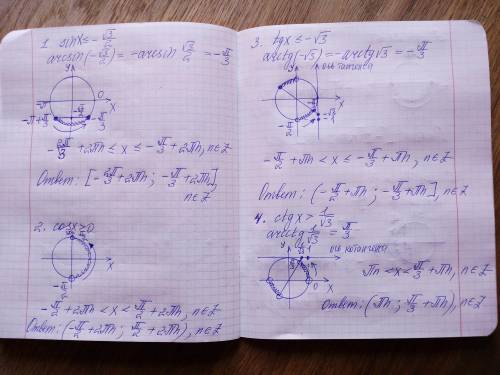 1. sinx ≤ -√3/2
arcsin(-√3/2) = -arcsin √3/2 = -π/3
y
0
-π
x
-π+π/3
-π/2
-π/3
-2π/3 + 2πn ≤ x ≤ -π/3 + 2πn, n∈Z
Ответ: [-2π/3 + 2πn; -π/3 + 2πn],
n∈Z
2. cosx > 0
y
π/2
x
-π/2
-π/2 + 2πn < x < π/2 + 2πn, n∈Z
Ответ: (-π/2 + 2πn; π/2 + 2πn), n∈Z
3. tgx ≤ -√3
arctg(-√3) = -arctg√3 = -π/3
y
ось тангенса
x
-π/2
-√3
-π/2 + πn < x ≤ -π/3 + πn, n∈Z
Ответ: (-π/2 + πn; -π/3 + πn], n∈Z
4. ctgx > 1/√3
arcctg 1/√3 = π/3
y
0
1/√3
1
ось котангенса
π/3
0
x
πn < x < π/3 + πn, n∈Z
Ответ: (πn; π/3 + πn), n∈Z